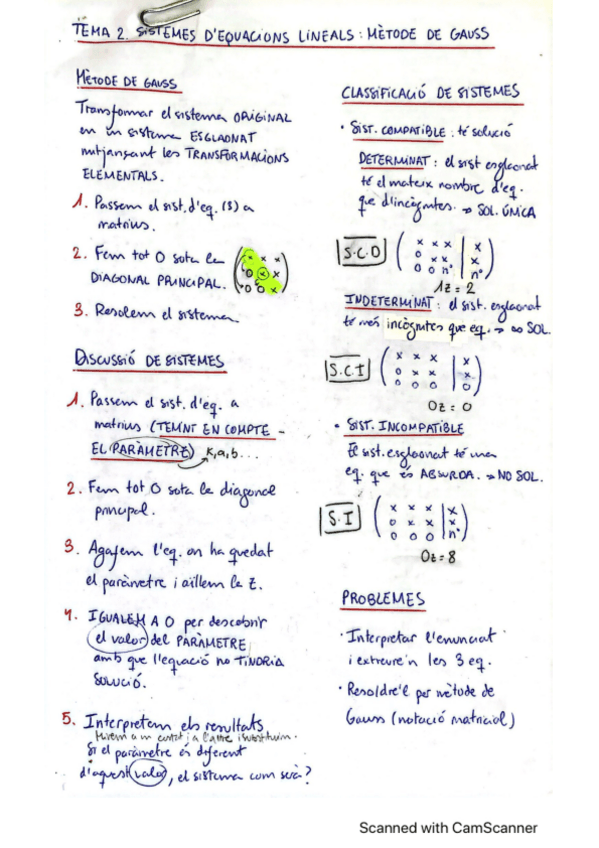 TEMA 2. SISTEMES D'EQUACIONS LINEALS: MÈTODE DE GAUSS
MÈTODE DE GAUSS
Transformar el sistema ORIGINAL
en un sistema ESGLAONAT
mitjançant les TRANSFORMACIONS
ELEMENTALS.
1. Passem el sist. d'eq. (S) a
matrius.
2. Fem tot 0 sota la
DIAGONAL PRINCIPAL.
x x x
0 x x
0 0 x
3. Resolem el sistema.
DISCUSSIÓ DE SISTEMES
1. Passem el sist. d'eq. a
matrius (TENINT EN COMPTE
EL PARÀMETRE) K, a, b...
2. Fem tot 0 sota la diagonal
principal.
3. Agafem l'eq. on ha quedat
el paràmetre i aïllem la Z.
4. IGUALEM A 0 per descobrir
el valor del PARÀMETRE
amb que l'equació no TINDRIA
SOLUCIÓ.
5. Interpretem els resultats
Si el paràmetre és diferent
d'aquest valor, el sistema com serà?
CLASSIFICACIÓ DE SISTEMES
• SIST. COMPATIBLE: té solució
DETERMINAT: el sist esglaonat
té el mateix nombre d'eq.
que d'incògnites. → SOL. ÚNICA
S.C.D
x x x | x
0 x x | x
0 0 nº | nº
1z = 2
INDETERMINAT: el sist. esglaonat
té més incògnites que eq. → ∞ SOL.
S.C.I
x x x | x
0 x x | x
0 0 0 | 0
0z = 0
• SIST. INCOMPATIBLE
El sist. esglaonat té una
eq. que és ABSURDA. → NO SOL.
S.I
x x x | x
0 x x | x
0 0 0 | nº
0z = 8
PROBLEMES
• Interpretar l'enunciat
i extreure'n les 3 eq.
• Resoldre'l per mètode de
Gauss (notació matricial)
Scanned with CamScanner